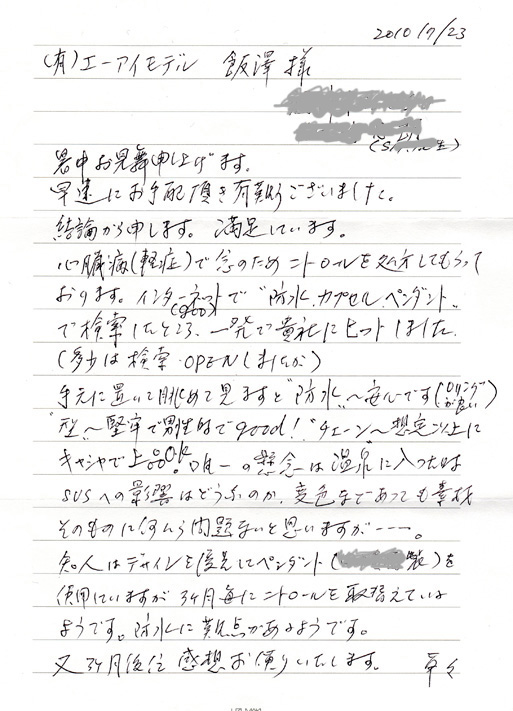 2010/7/23
(有)エーアイモデル 飯澤 様
暑中お見舞申上げます。
早速にお手配頂き有難うございました。
結論から申します。満足しています。
心臓病(軽症)で念のためニトロールを処方してもらって
おります。インターネットで"防水.カプセル.ペンダント"
で検索したところ、一発で貴社にヒットしました.
(多少は検索・OPENしましたが)
手元に置いて眺めて見ますと"防水"〜安心です(Oリングが良い)
"型"〜堅牢で男性的でgood! "チェーン"〜想定以上に
キャシャで上品OK。唯一の懸念は温泉に入った時
SUSへの影響はどうなのか、変色まであっても素材
そのものに何んら問題ないと思いますが----。
知人はデザインを優先してペンダント( 製)を
使用していますが3ヶ月毎にニトロールを取替えている
ようです。防水に難点があるようです。
又3ヶ月後位 感想お便りいたします。 草々